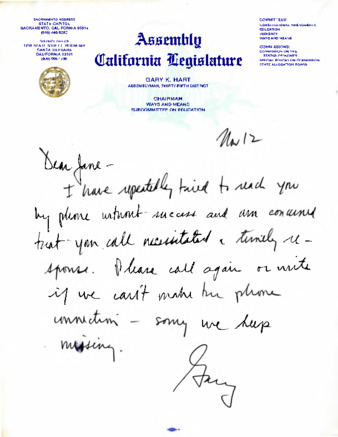 SACRAMENTO ADDRESS
STATE CAPITOL
SACRAMENTO, CAL FORNIA 95814
COMMITTEES
EDUCATION
JUDICIARY
WAYS AND MEANS
Assembly
California Legislature
GARY K. HART
ASSEMBLYMAN, THIRTY-FIFTH DISTRICT
CHAIRMAN
WAYS AND MEANS
SUBCOMMITTEE ON EDUCATION
Nov 12
Dear Jane -
I have repeatedly tried to reach you
by phone without success and am concerned
that you call necessitated a timely re-
sponse. Please call again or write
if we can't make the phone
connection - sorry we keep
missing.
Gary